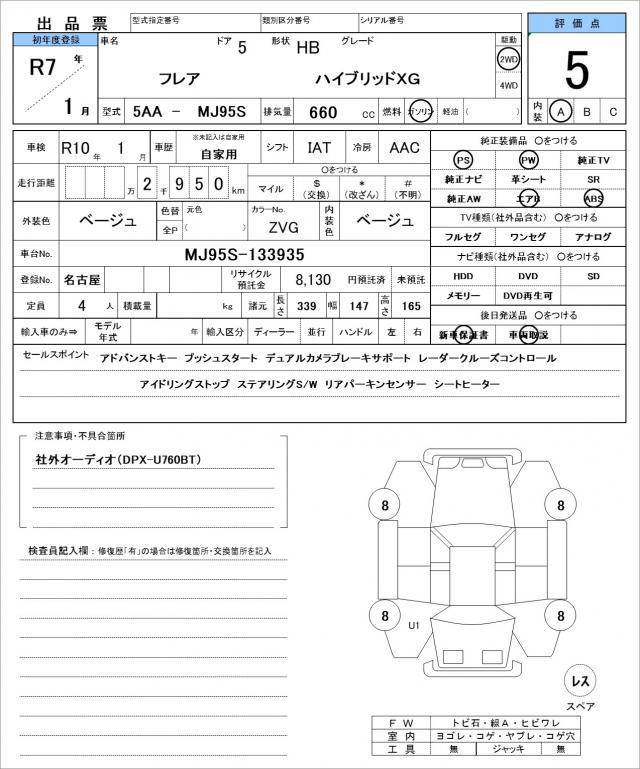 出品票 型式指定番号 類別区分番号 シリアル番号 評価点
初年度登録 車名 ドア 5 形状 HB グレード 駆動
R7 年 フレア ハイブリッドXG 2WD 5
4WD
1 月 型式 5AA - MJ95S 排気量 660 cc 燃料 ガソリン 軽油 ( ) 内装 A B C
車検 R10 年 1 月 車歴 ※未記入は自家用 自家用 シフト IAT 冷房 AAC 純正装備品 〇をつける
PS PW 純正TV
走行距離 万 2 千 9 5 0 km 〇をつける
マイル $ (交換) * (改ざん) # (不明) 純正ナビ 革シート SR
純正AW エアB ABS
外装色 ベージュ 色替 元色 カラーNo. 内装色 ベージュ TV種類(社外品含む) 〇をつける
全P ( ) ZVG フルセグ ワンセグ アナログ
車台No. MJ95S-133935 ナビ種類(社外品含む) 〇をつける
登録No. 名古屋 リサイクル預託金 8,130 円預託済 未預託 HDD DVD SD
定員 4 人 積載量 kg 諸元 長さ 339 幅 147 高さ 165 メモリー DVD再生可
後日発送品 〇をつける
輸入車のみ⇒ モデル年式 年 輸入区分 ディーラー 並行 ハンドル 左 右 新車保証書 車両取説
セールスポイント アドバンストキー プッシュスタート デュアルカメラブレーキサポート レーダークルーズコントロール
アイドリングストップ ステアリングS/W リアパーキンセンサー シートヒーター
注意事項・不具合箇所
社外オーディオ(DPX-U760BT)
検査員記入欄 : 修復歴「有」の場合は修復箇所・交換箇所を記入
8 8
8 8
U1
レス
スペア
FW トビ石・線A・ヒビワレ
室内 ヨゴレ・コゲ・ヤブレ・コゲ穴
工具 無 ジャッキ 無